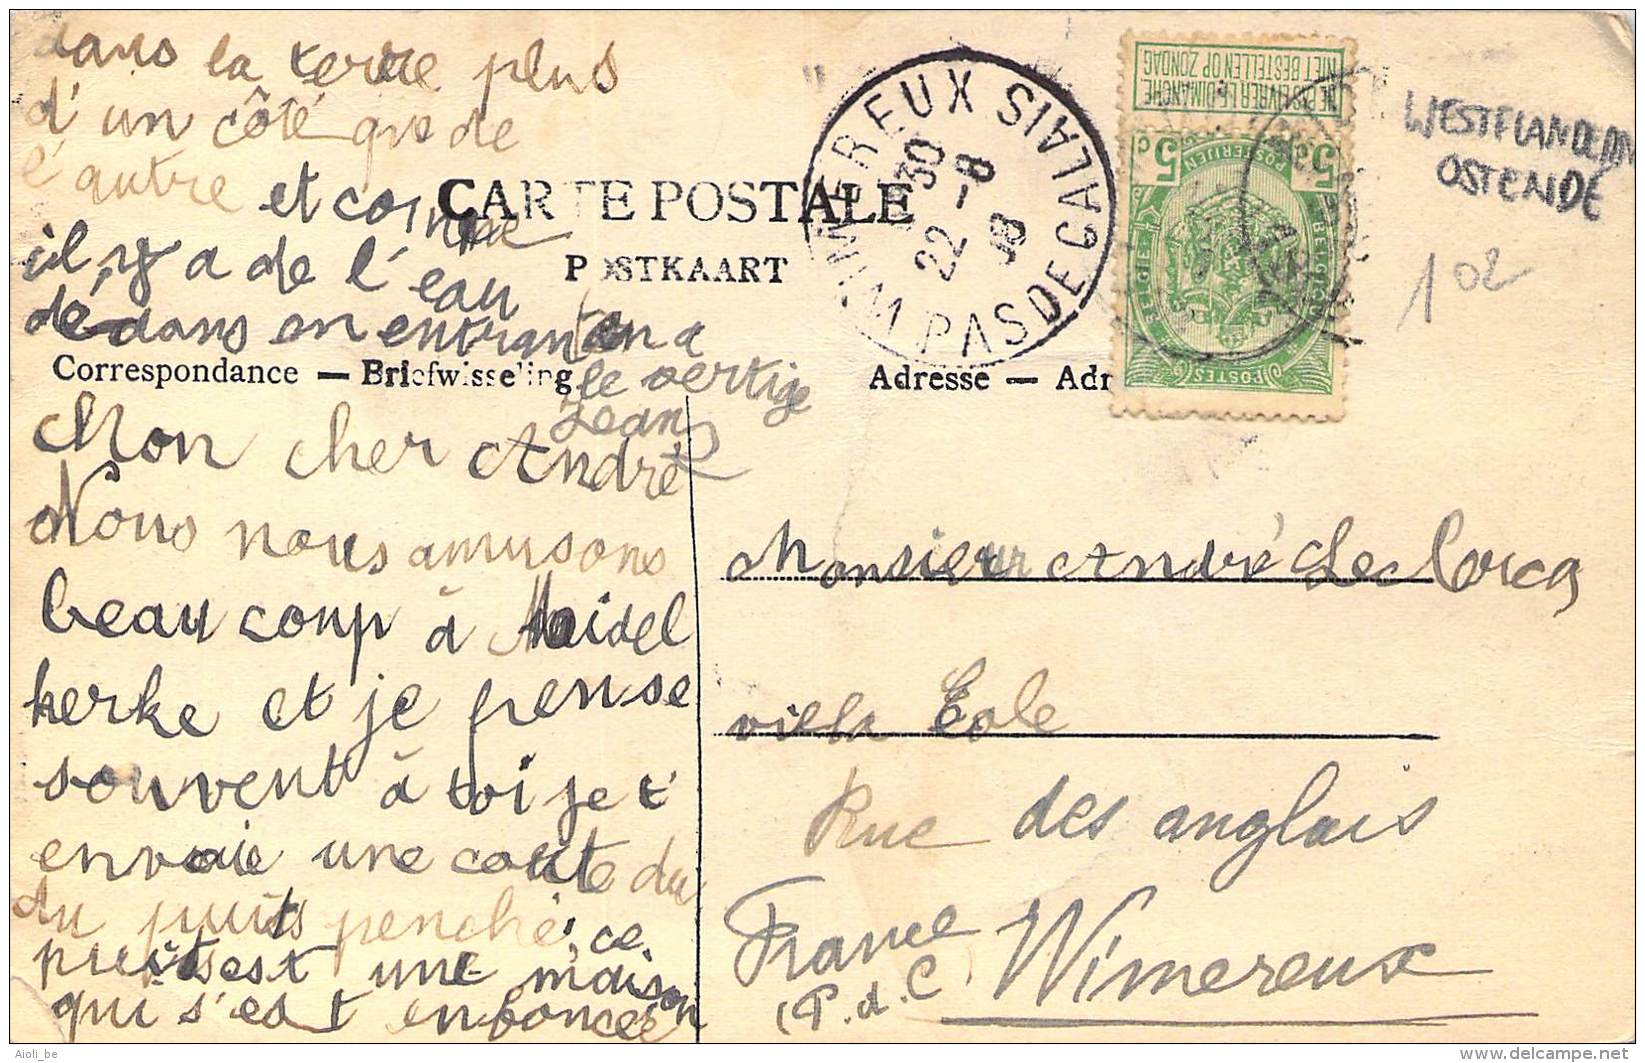 dans la terre plus
d'un côté que de
l'autre et comme
il y a de l'eau
dedans en entrant on a
le vertige
Jean
CARTE POSTALE
POSTKAART
Correspondance — Briefwisseling
Mon cher André
Nous nous amusons
beaucoup à Midel
kerke et je pense
souvent à toi je t'
envoie une carte du
du puits penché, ce
puits est une maison
qui s'est enfoncée
WIMEREUX PAS DE CALAIS
22-8
NE PAS LIVRER LE DIMANCHE
NIET BESTELLEN OP ZONDAG
5c 5c
POSTERIJEN
BELGIE BELGIQUE
POSTES
WESTFLANDEREN
OSTENDE
102
Adresse — Adr
Monsieur André Leclercq
villa Eole
Rue des anglais
Wimereux
France
(P. d. C
Aioli_be
www.delcampe.net